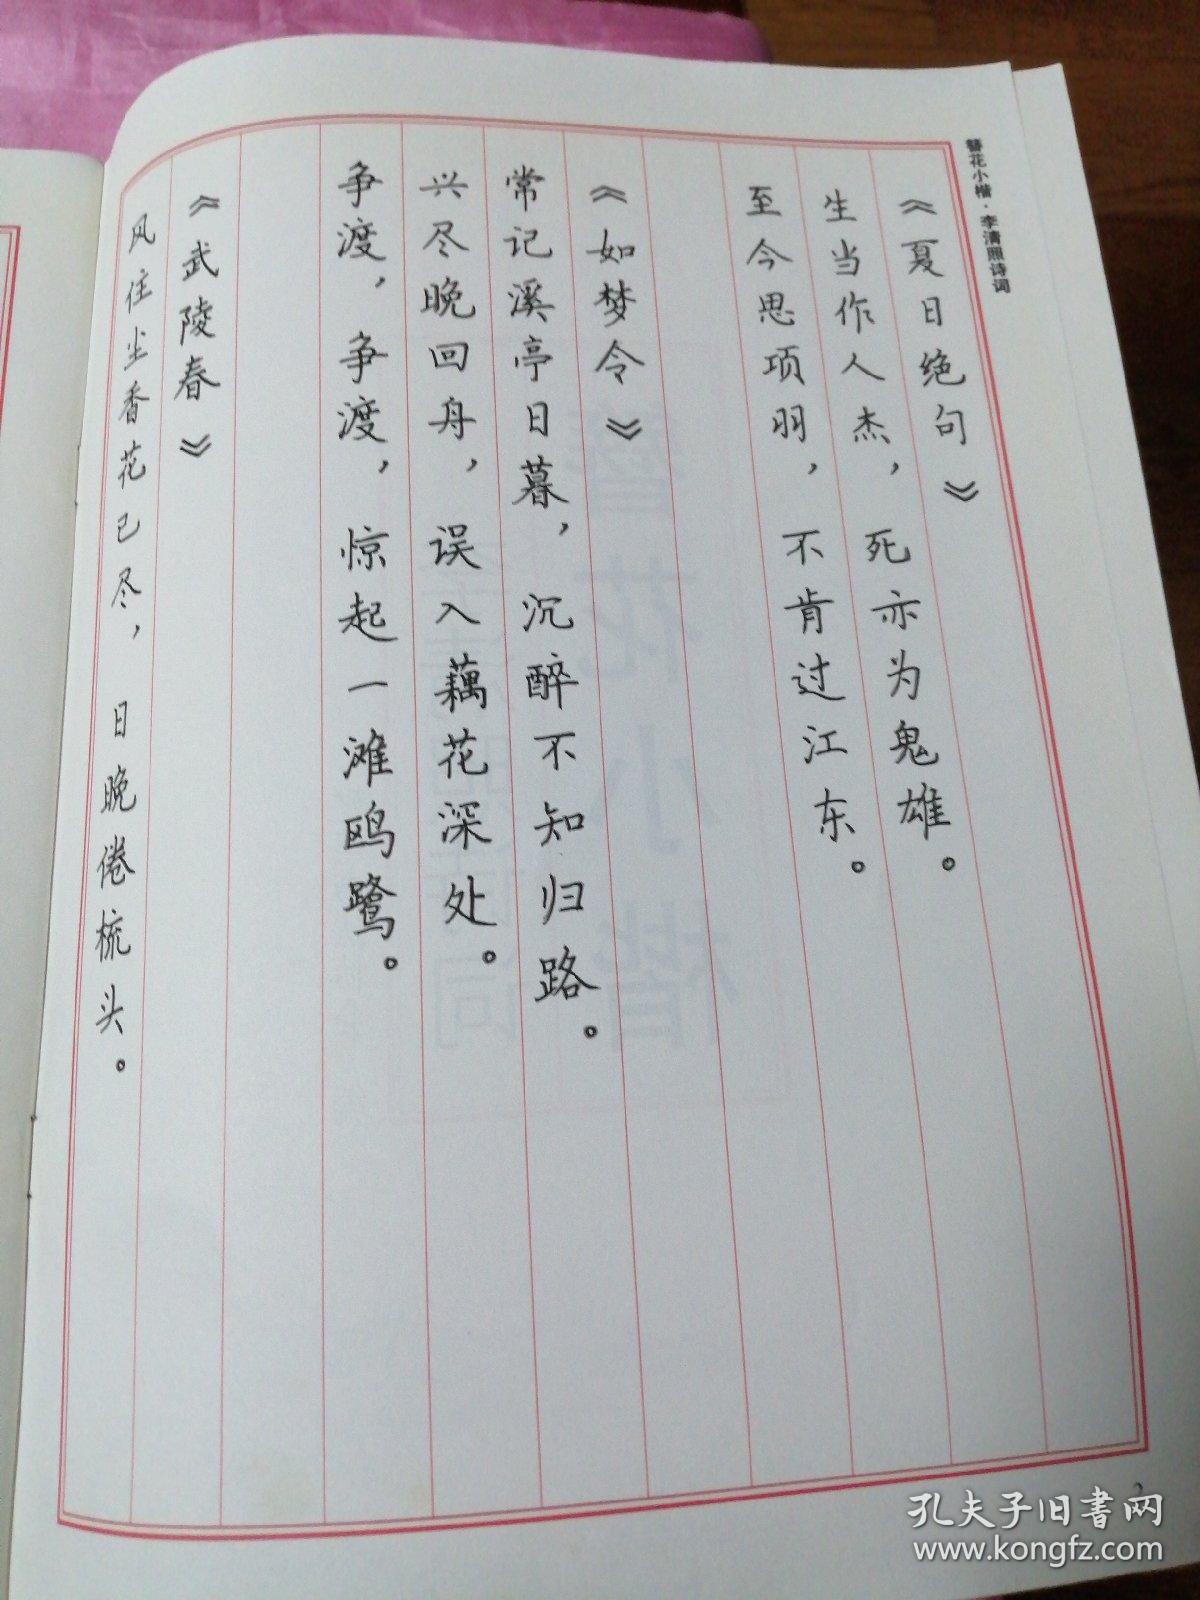 簪花小楷·李清照诗词
《夏日绝句》
生当作人杰，死亦为鬼雄。
至今思项羽，不肯过江东。
《如梦令》
常记溪亭日暮，沉醉不知归路。
兴尽晚回舟，误入藕花深处。
争渡，争渡，惊起一滩鸥鹭。
《武陵春》
风住尘香花已尽，日晚倦梳头。
孔夫子旧书网
www.kongfz.com